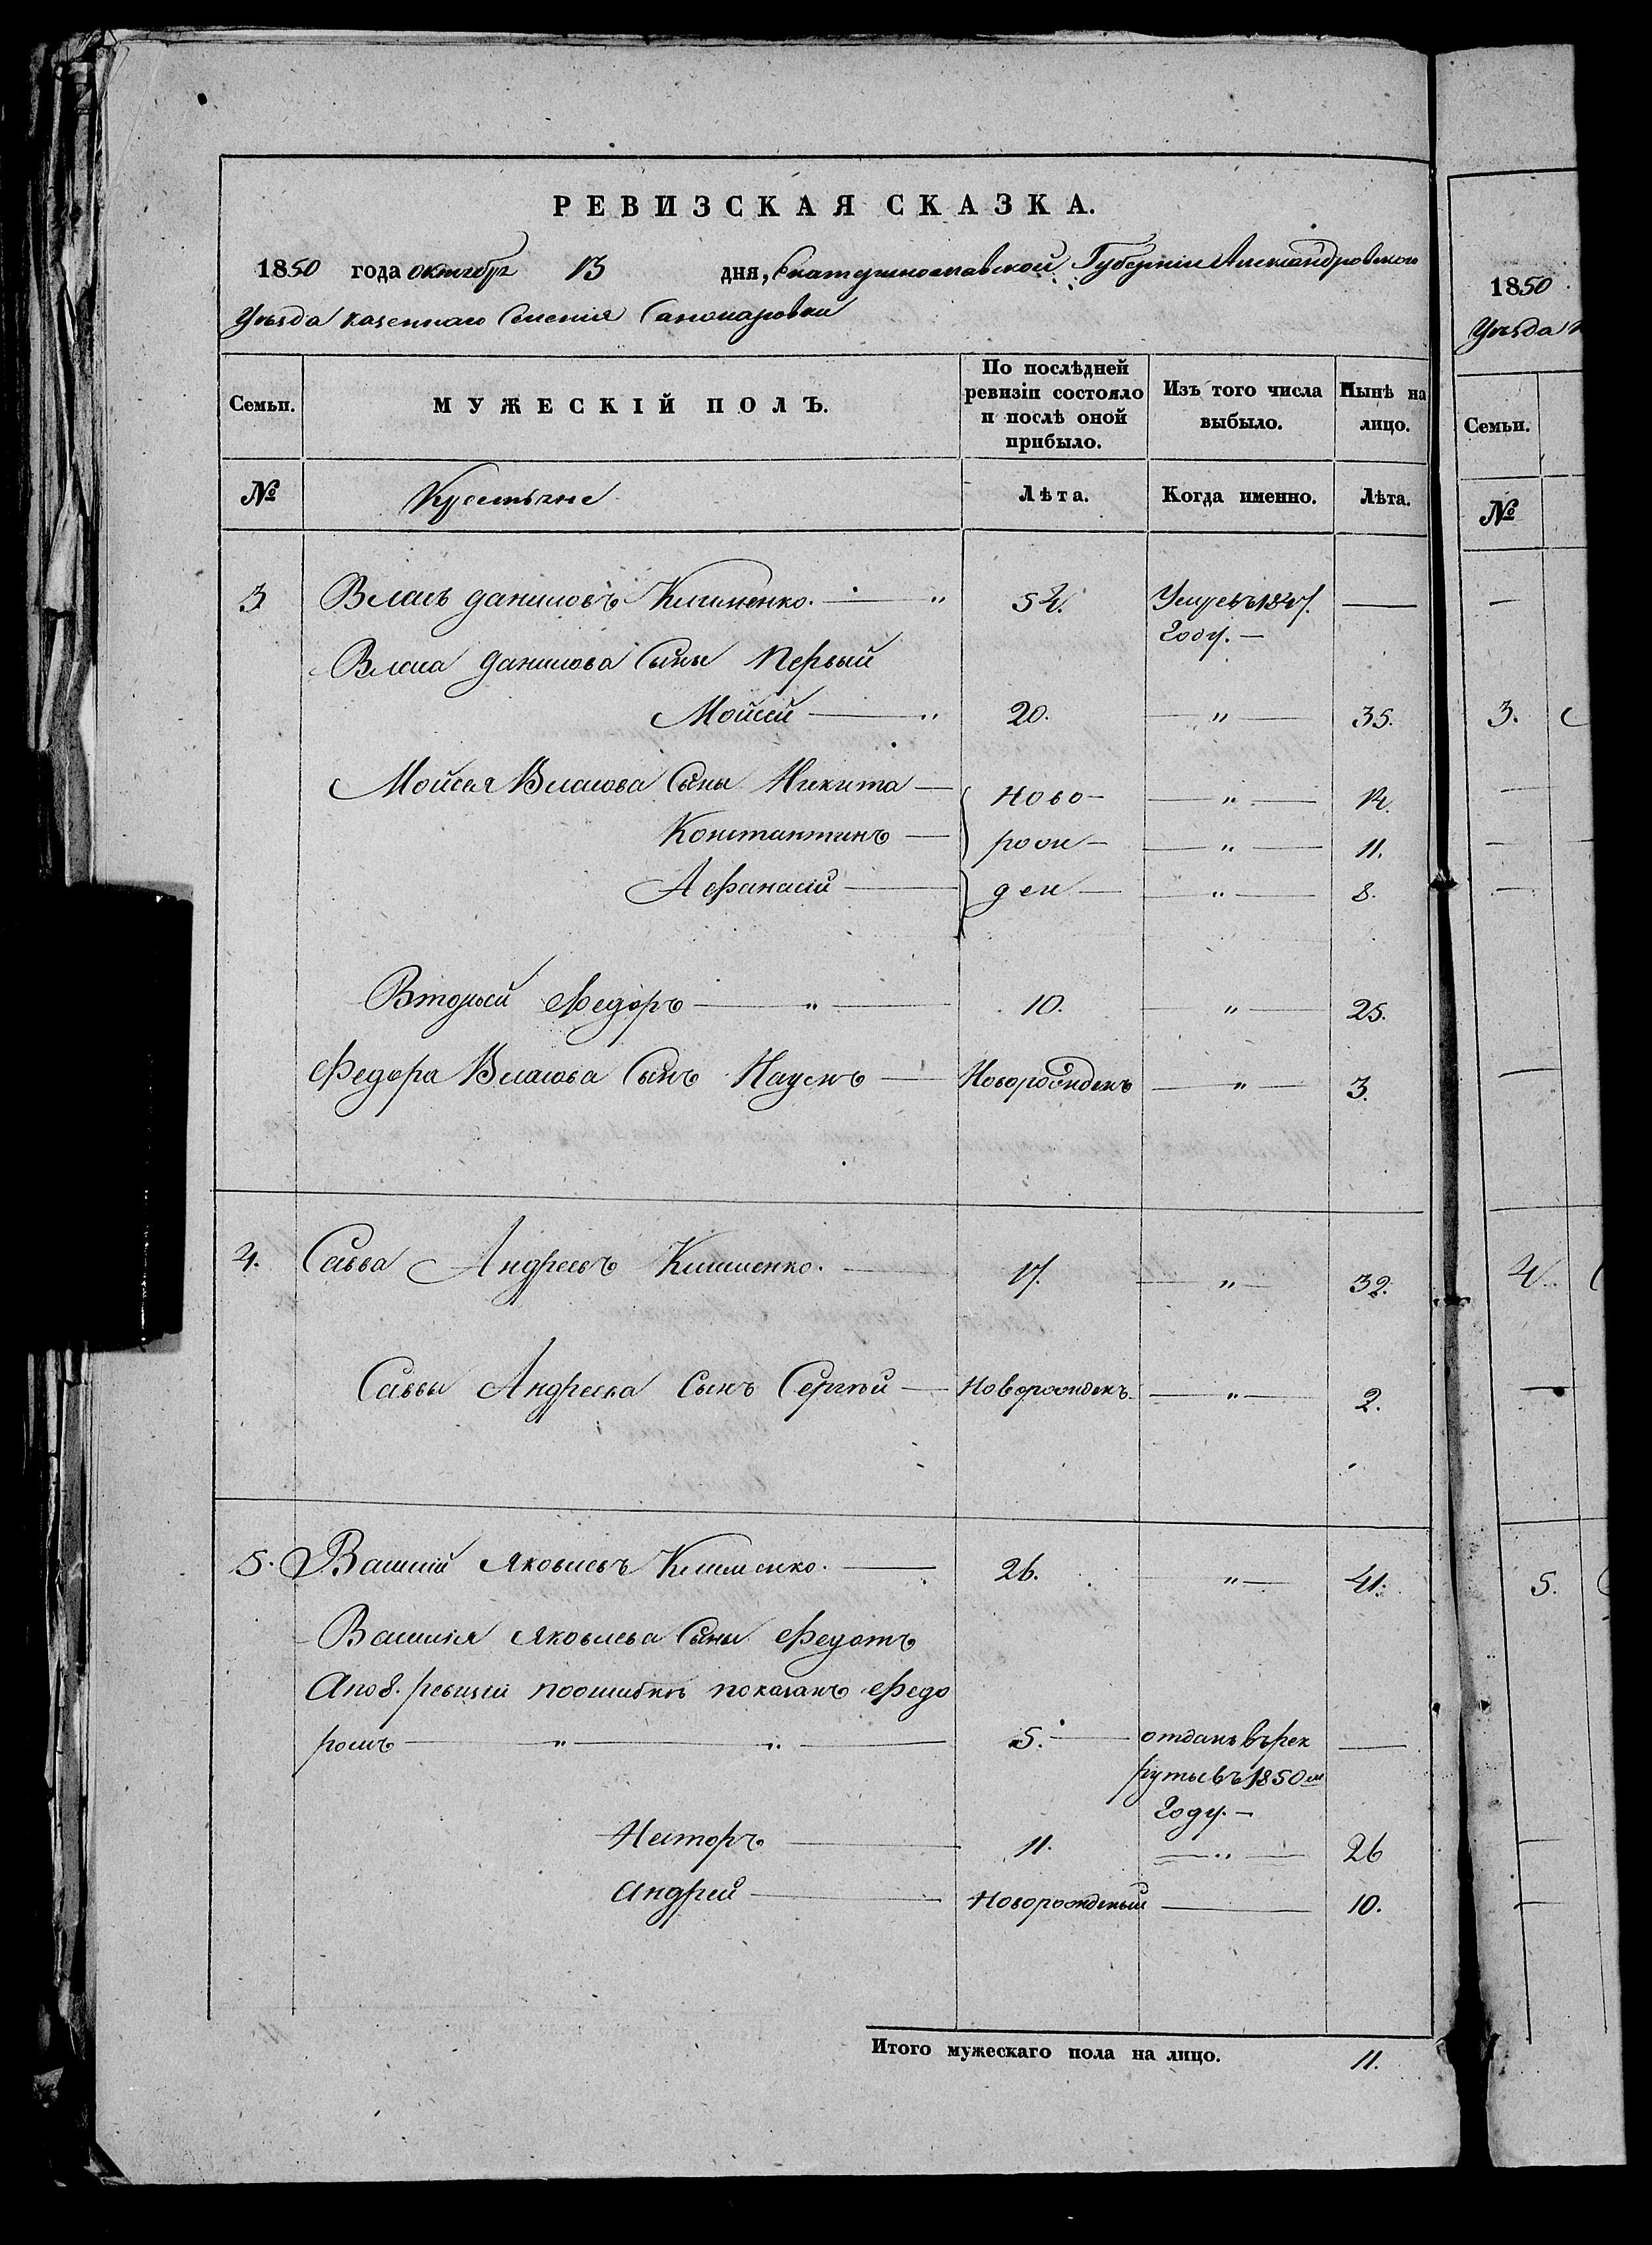 РЕВИЗСКАЯ СКАЗКА.
1850 года октября 13 дня, Екатеринославской Губерніи Александровского
Уѣзда казеннаго Селенія
Семьи. МУЖЕСКІЙ ПОЛЪ. По послѣдней ревизіи состояло и послѣ оной прибыло. Изъ того числа выбыло. Нынѣ на лицо.
№ Крестьяне Лѣта. Когда именно. Лѣта.
3 Власъ Даниловъ Клименко. — " 54. Умре въ 1847. —
Году. —
Власа Данилова Сыны Первый
Мойсей — " 20. — " — 35.
Мойсея Власова Сыны Никита — Ново- — " — 14.
Константинъ — рож- — " — 11.
Афанасій — ден — " — 8.
Вторый Федоръ — " — 10. — " — 25.
Федора Власова Сынъ Наумъ — Новорожденъ — " — 3.
4. Савва Андреевъ Клименко. — 17. — " — 32.
Саввы Андреева Сынъ Сергѣй — Новорожденъ — " — 2.
5. Василій Яковлевъ Клименко. — 26. — " — 41.
Василія Яковлева Сыны Федотъ
А по 8. ревизіи по ошибкѣ показанъ Федо
ромъ — " — " — 5. — отданъ въ рек —
руты въ 1850 м
Году. —
Несторъ — 11. — " — 26
Андрей — Новорожденый — 10.
Итого мужескаго пола на лицо. 11.
1850
Уѣзда
Семьи.
№
3.
4.
5.